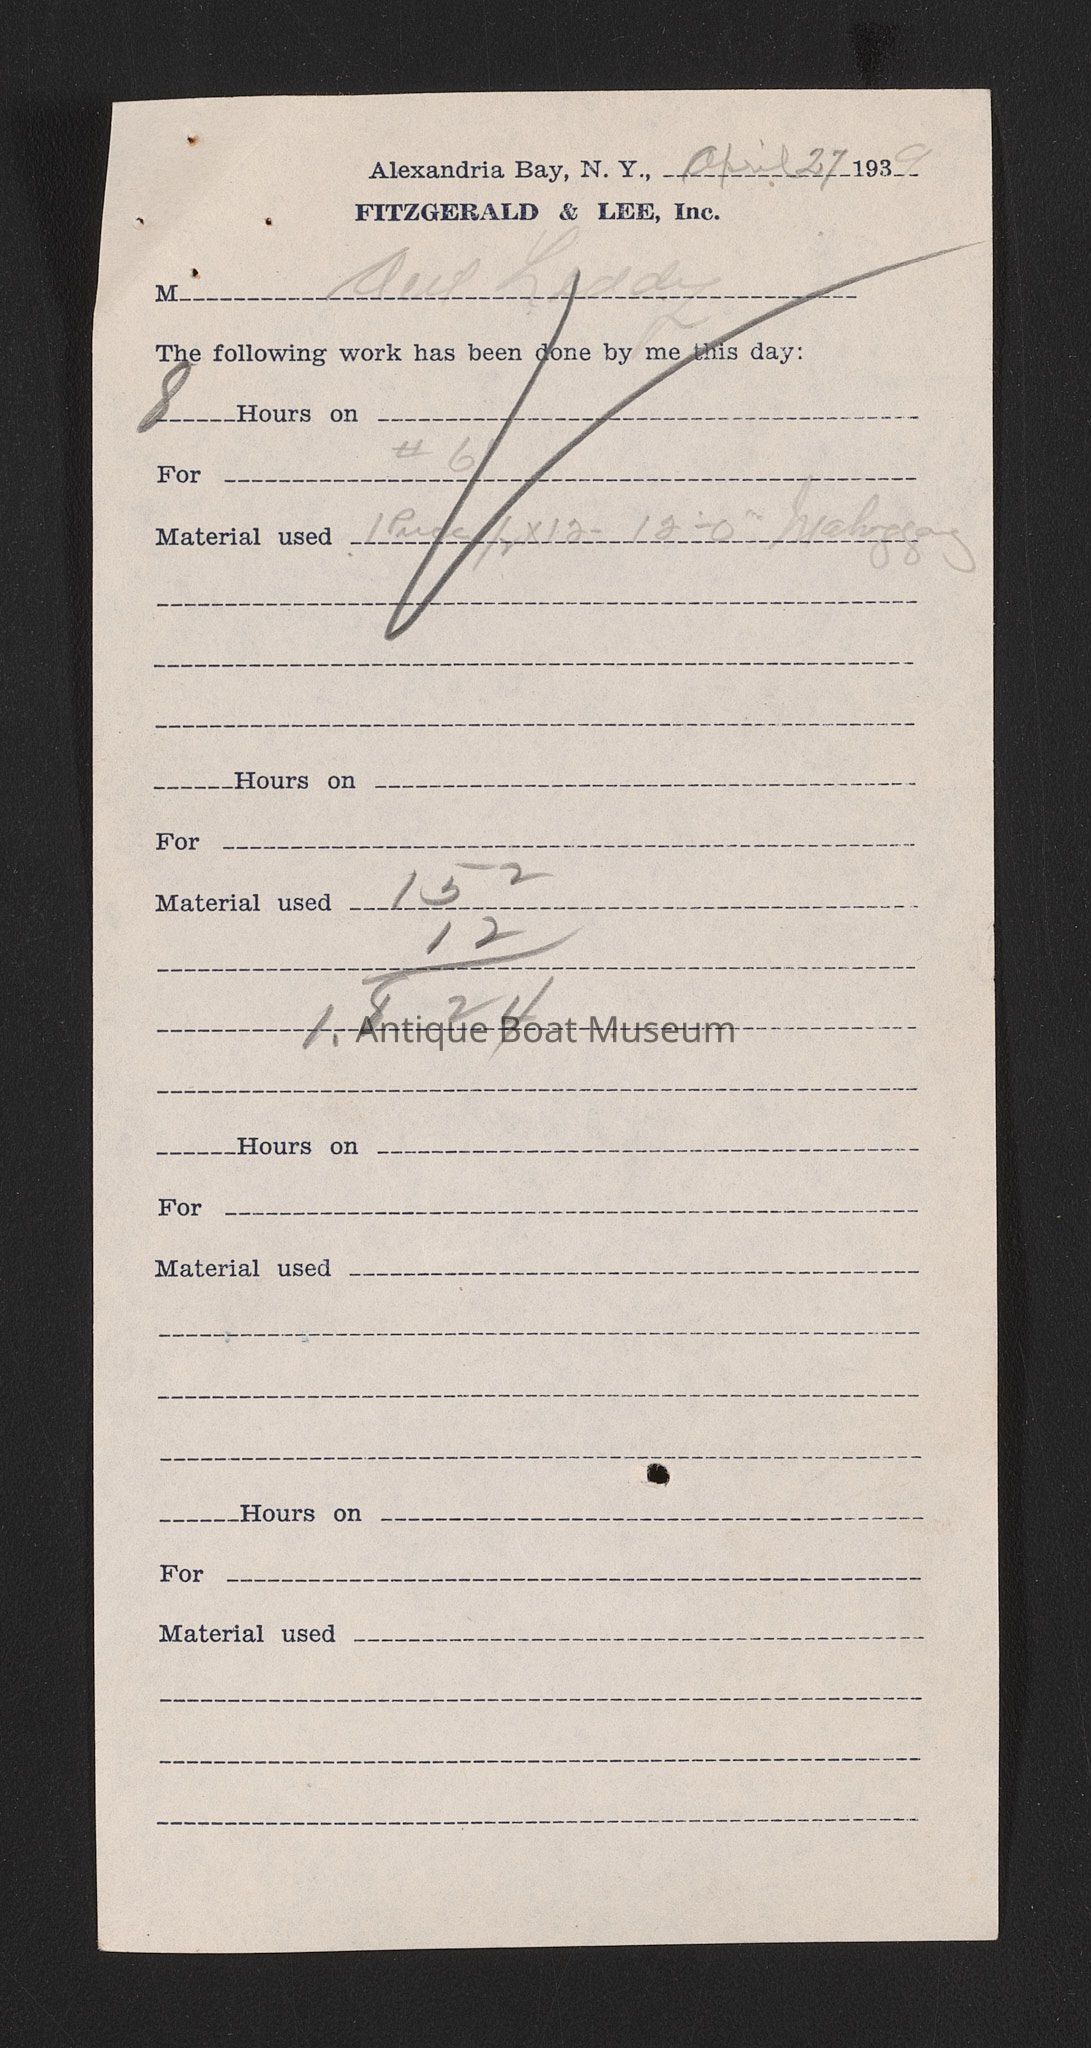 Alexandria Bay, N. Y., April 27 1939
FITZGERALD & LEE, Inc.
M Leddy
The following work has been done by me this day:
8 Hours on
For # 61
Material used 1 Piece 1/2 x 12 - 12'-0" Mahoggany
Hours on
For
Material used 152
12
1.824
Antique Boat Museum
Hours on
For
Material used
Hours on
For
Material used